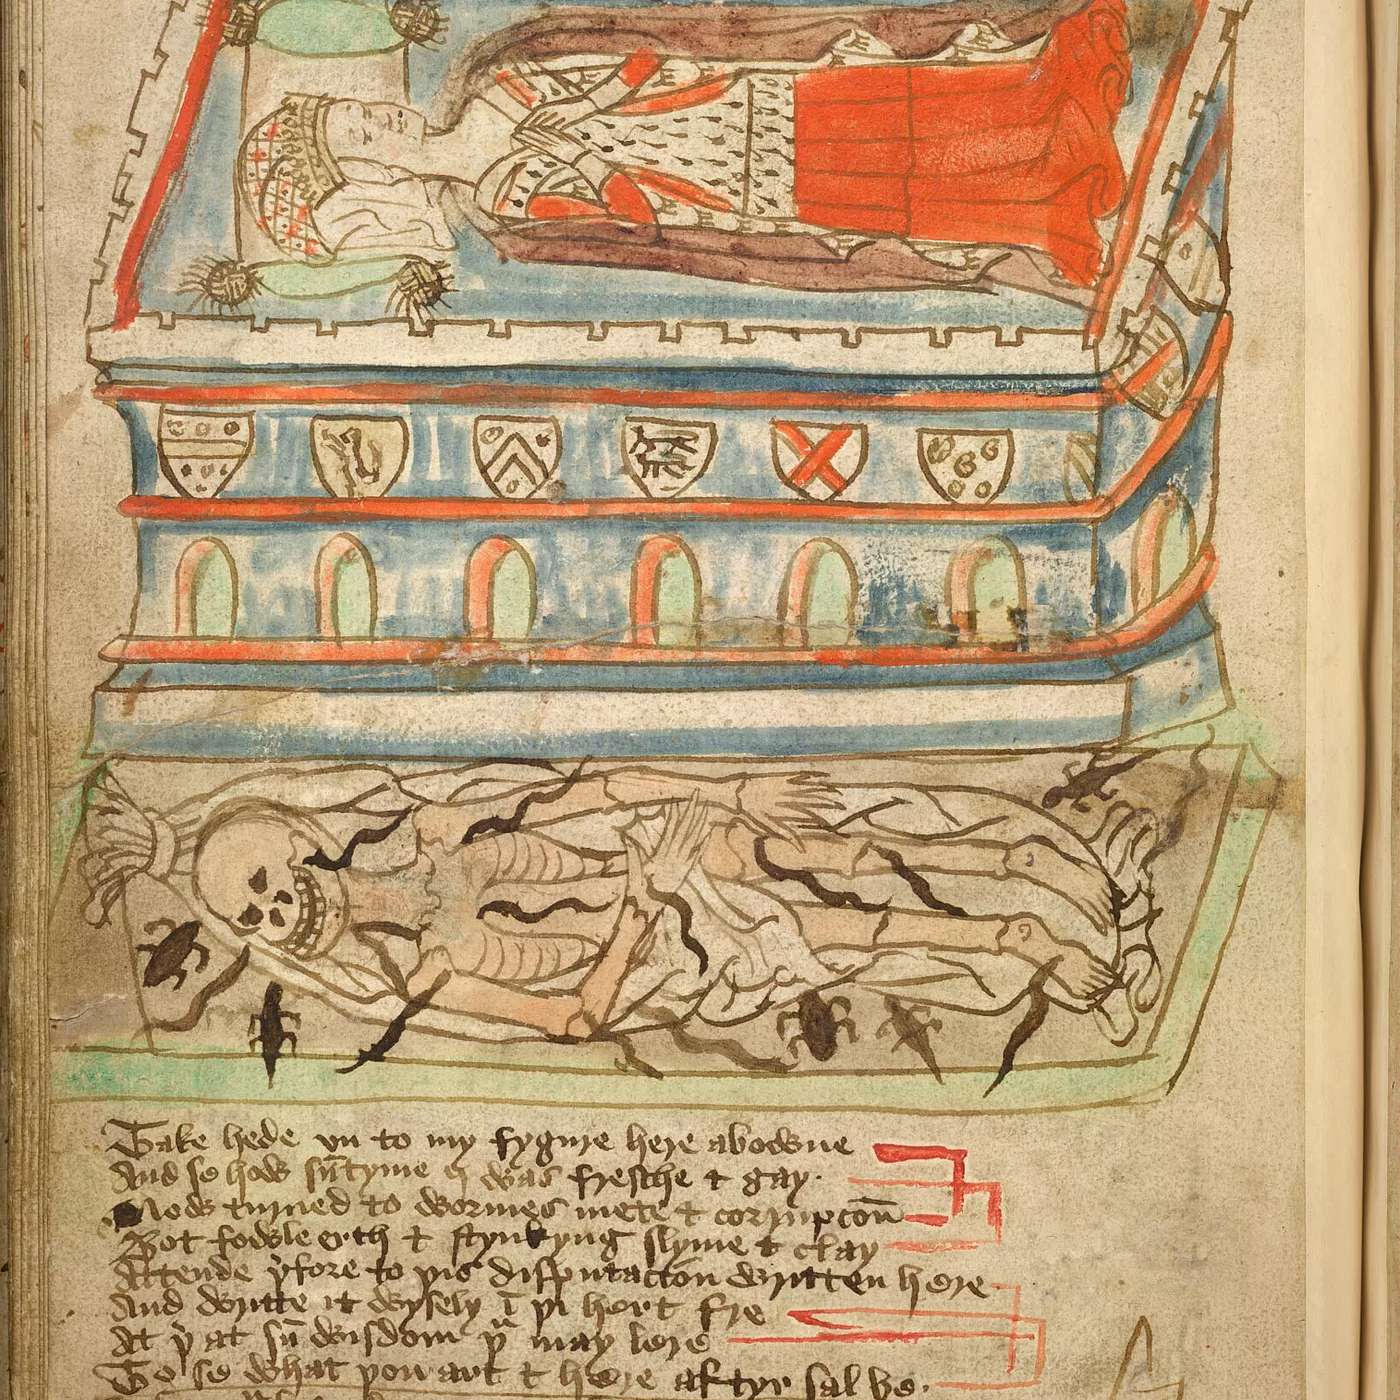 Take hede vn to my fygure here abowne
And se how sũtyme I was fresche & gay
Now turned to wormes mete & corrupcoñ
Bot fowle erth & stynkyng slyme & clay
Attende þfore to þis disputacion written here
And writte it wysely ī þi hert fre
At þ at sũ wisdom þu may lere
To se what þou art & here aftyr sal be.